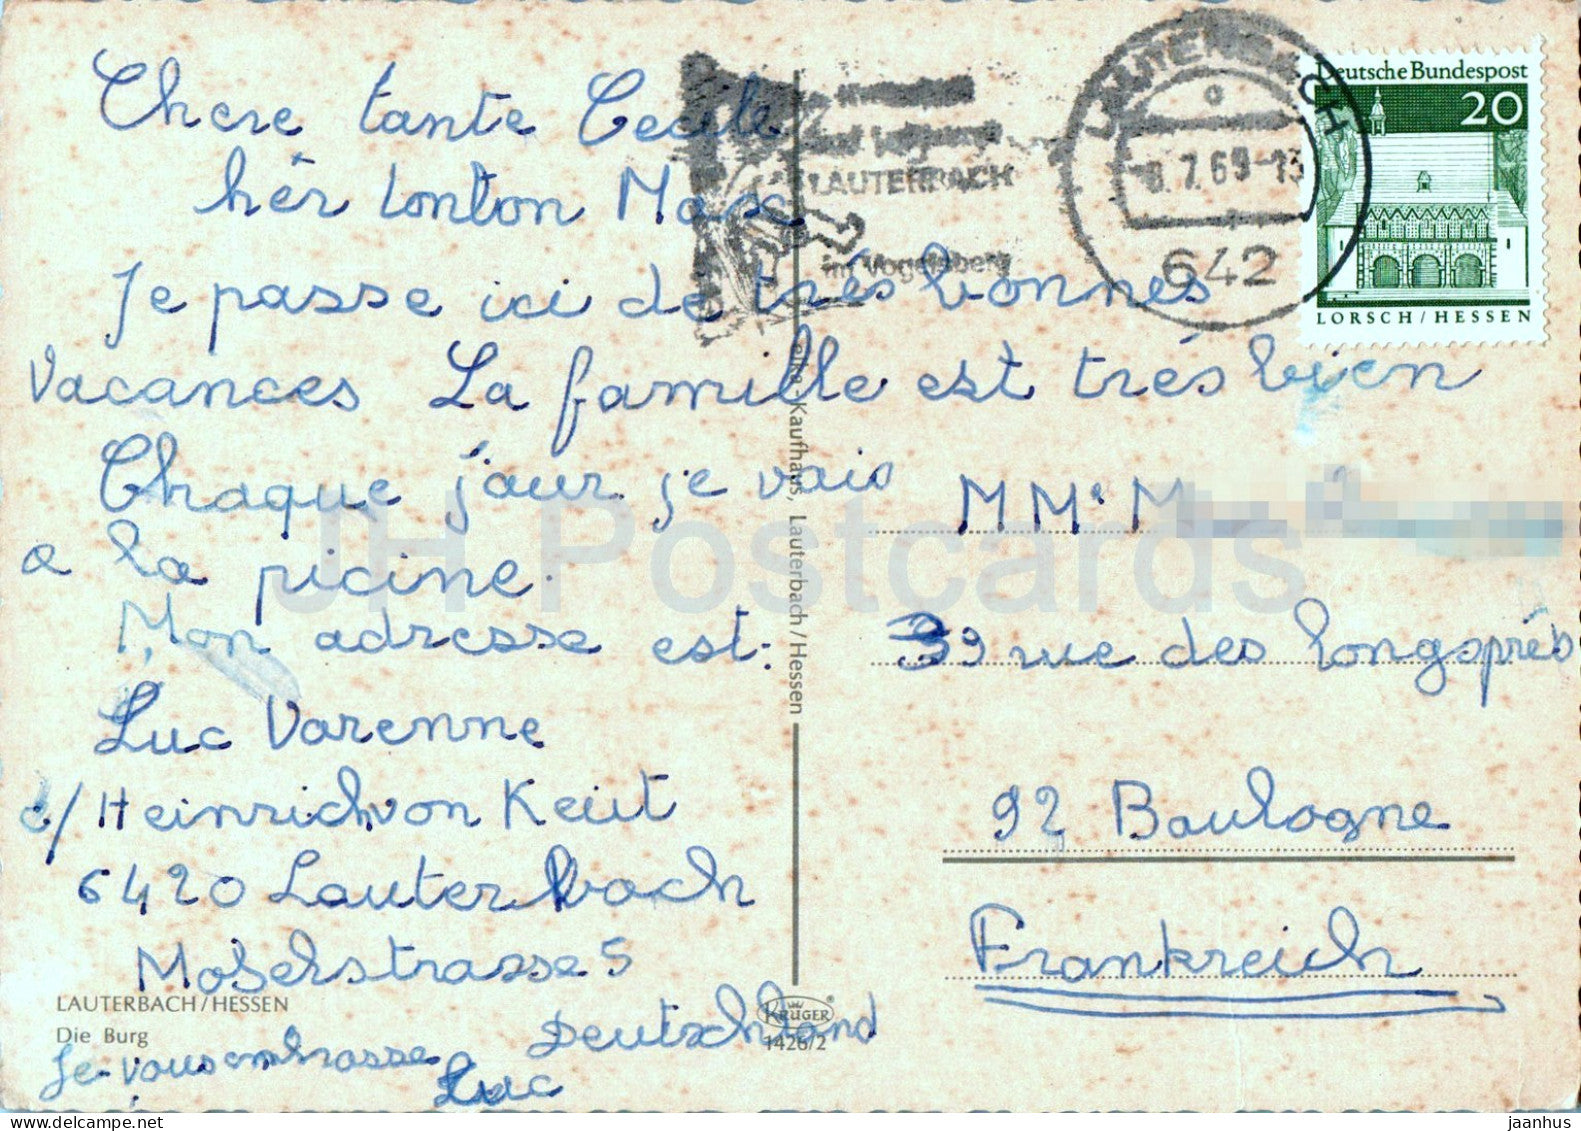 Chere tante Cecile
hér tonton Max
Je passe ici de trés bonnes
Vacances La famille est trés bien
Chaque jour je vais
a la picine.
Mon adresse est:
Luc Varenne
c/ Heinrich von Keut
6420 Lauterbach
Moserstrasse 5
Deutschland
Je vous embrasse
Luc
LAUTERBACH/HESSEN
Die Burg
Kaufhaus, Lauterbach/Hessen
KRÜGER
1426/2
LAUTERBACH
im Vogelsberg
LAUTERBACH
8.7.69-13
642
Deutsche Bundespost
20
LORSCH/HESSEN
MMe M
39 rue des longsprés
92 Boulogne
Frankreich
JH Postcards
delcampe.net
jaanhus